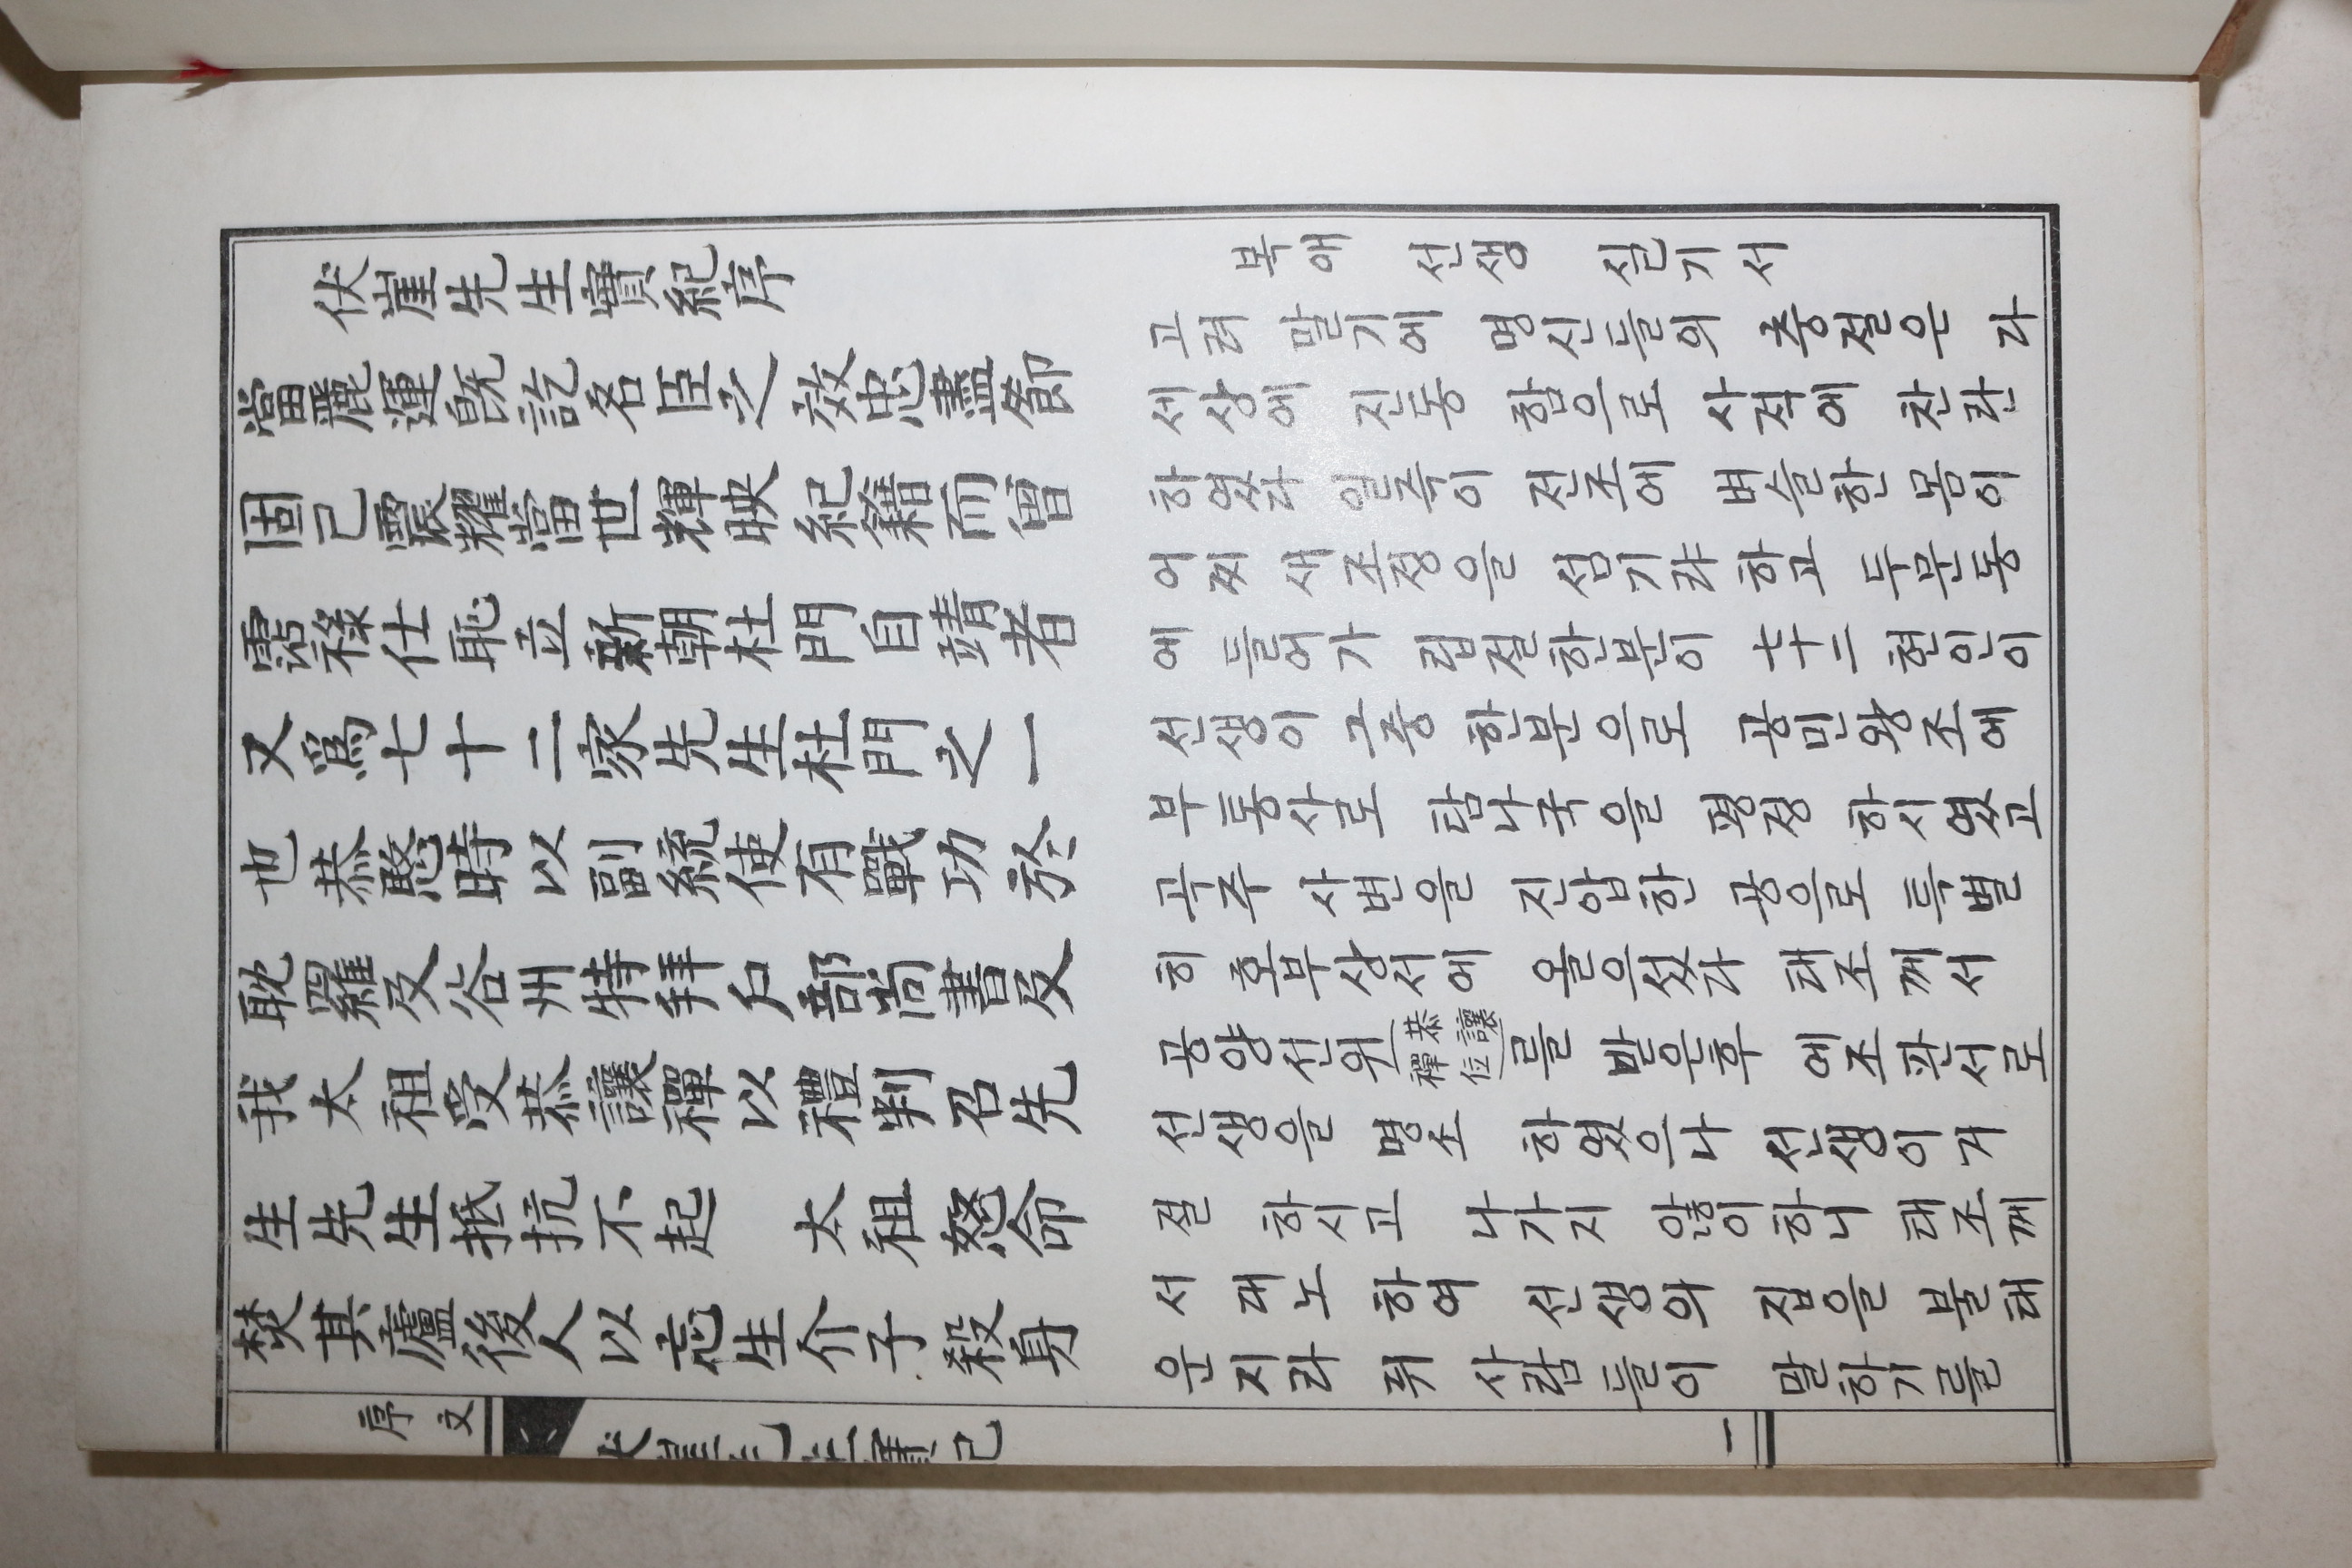 伏崖先生實紀序
當麗運旣訖名臣之效忠盡節
固已震耀當世輝映紀籍而曾
霑祿仕恥立新朝杜門自靖者
又爲七十二家先生杜門之一
也恭愍時以副統使有戰功於
耽羅及谷州特拜戶部尙書及
我太祖受恭讓禪以禮判召先
生先生抵抗不起 太祖怒命
焚其廬後人以忘生介子殺身
복애 선생 실기서
고려 말기에 명신들의 충절은 다
세상에 진동 함으로 사적에 찬란
하였다 일즉이 전조에 벼슬한 몸이
어찌 새조정을 섬기랴 하고 두문동
에 들어가 립절한분이 七十二 현인이
선생이 그중 한분으로 공민왕조에
부통사로 탐나국을 평정 하시였고
곡주 사변을 진압한 공으로 특별
히 호부상서에 올으섰다 태조께서
공양선위(恭讓禪位)를 받은후 예조판서로
선생을 명소 하였으나 선생이 거
절 하시고 나가지 않이하니 태조께
서 대노 하여 선생의 집을 불태
운지라 뒤 사람들이 말하기를
序文
一